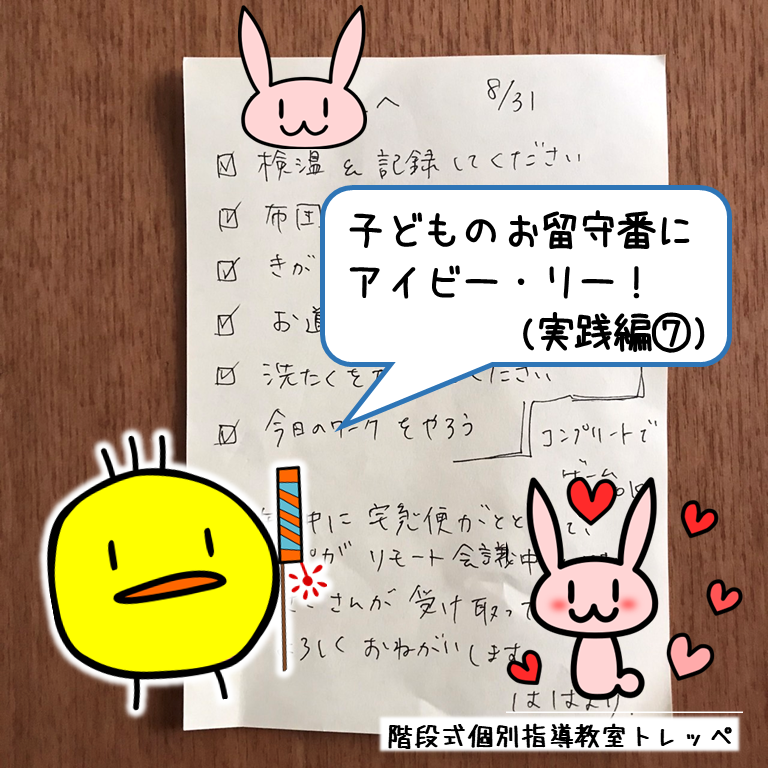 へ 8/31
検温&記録してください
布団
きが
お道
洗たくを ください
今日のワークをやろう
コンプリートで
ゲームOK
中に 宅急便がとど
パパが リモート会議中
さんが 受け取って
ろしく おねがいします
ははより
子どものお留守番に
アイビー・リー!
(実践編⑦)
階段式個別指導教室トレッペ